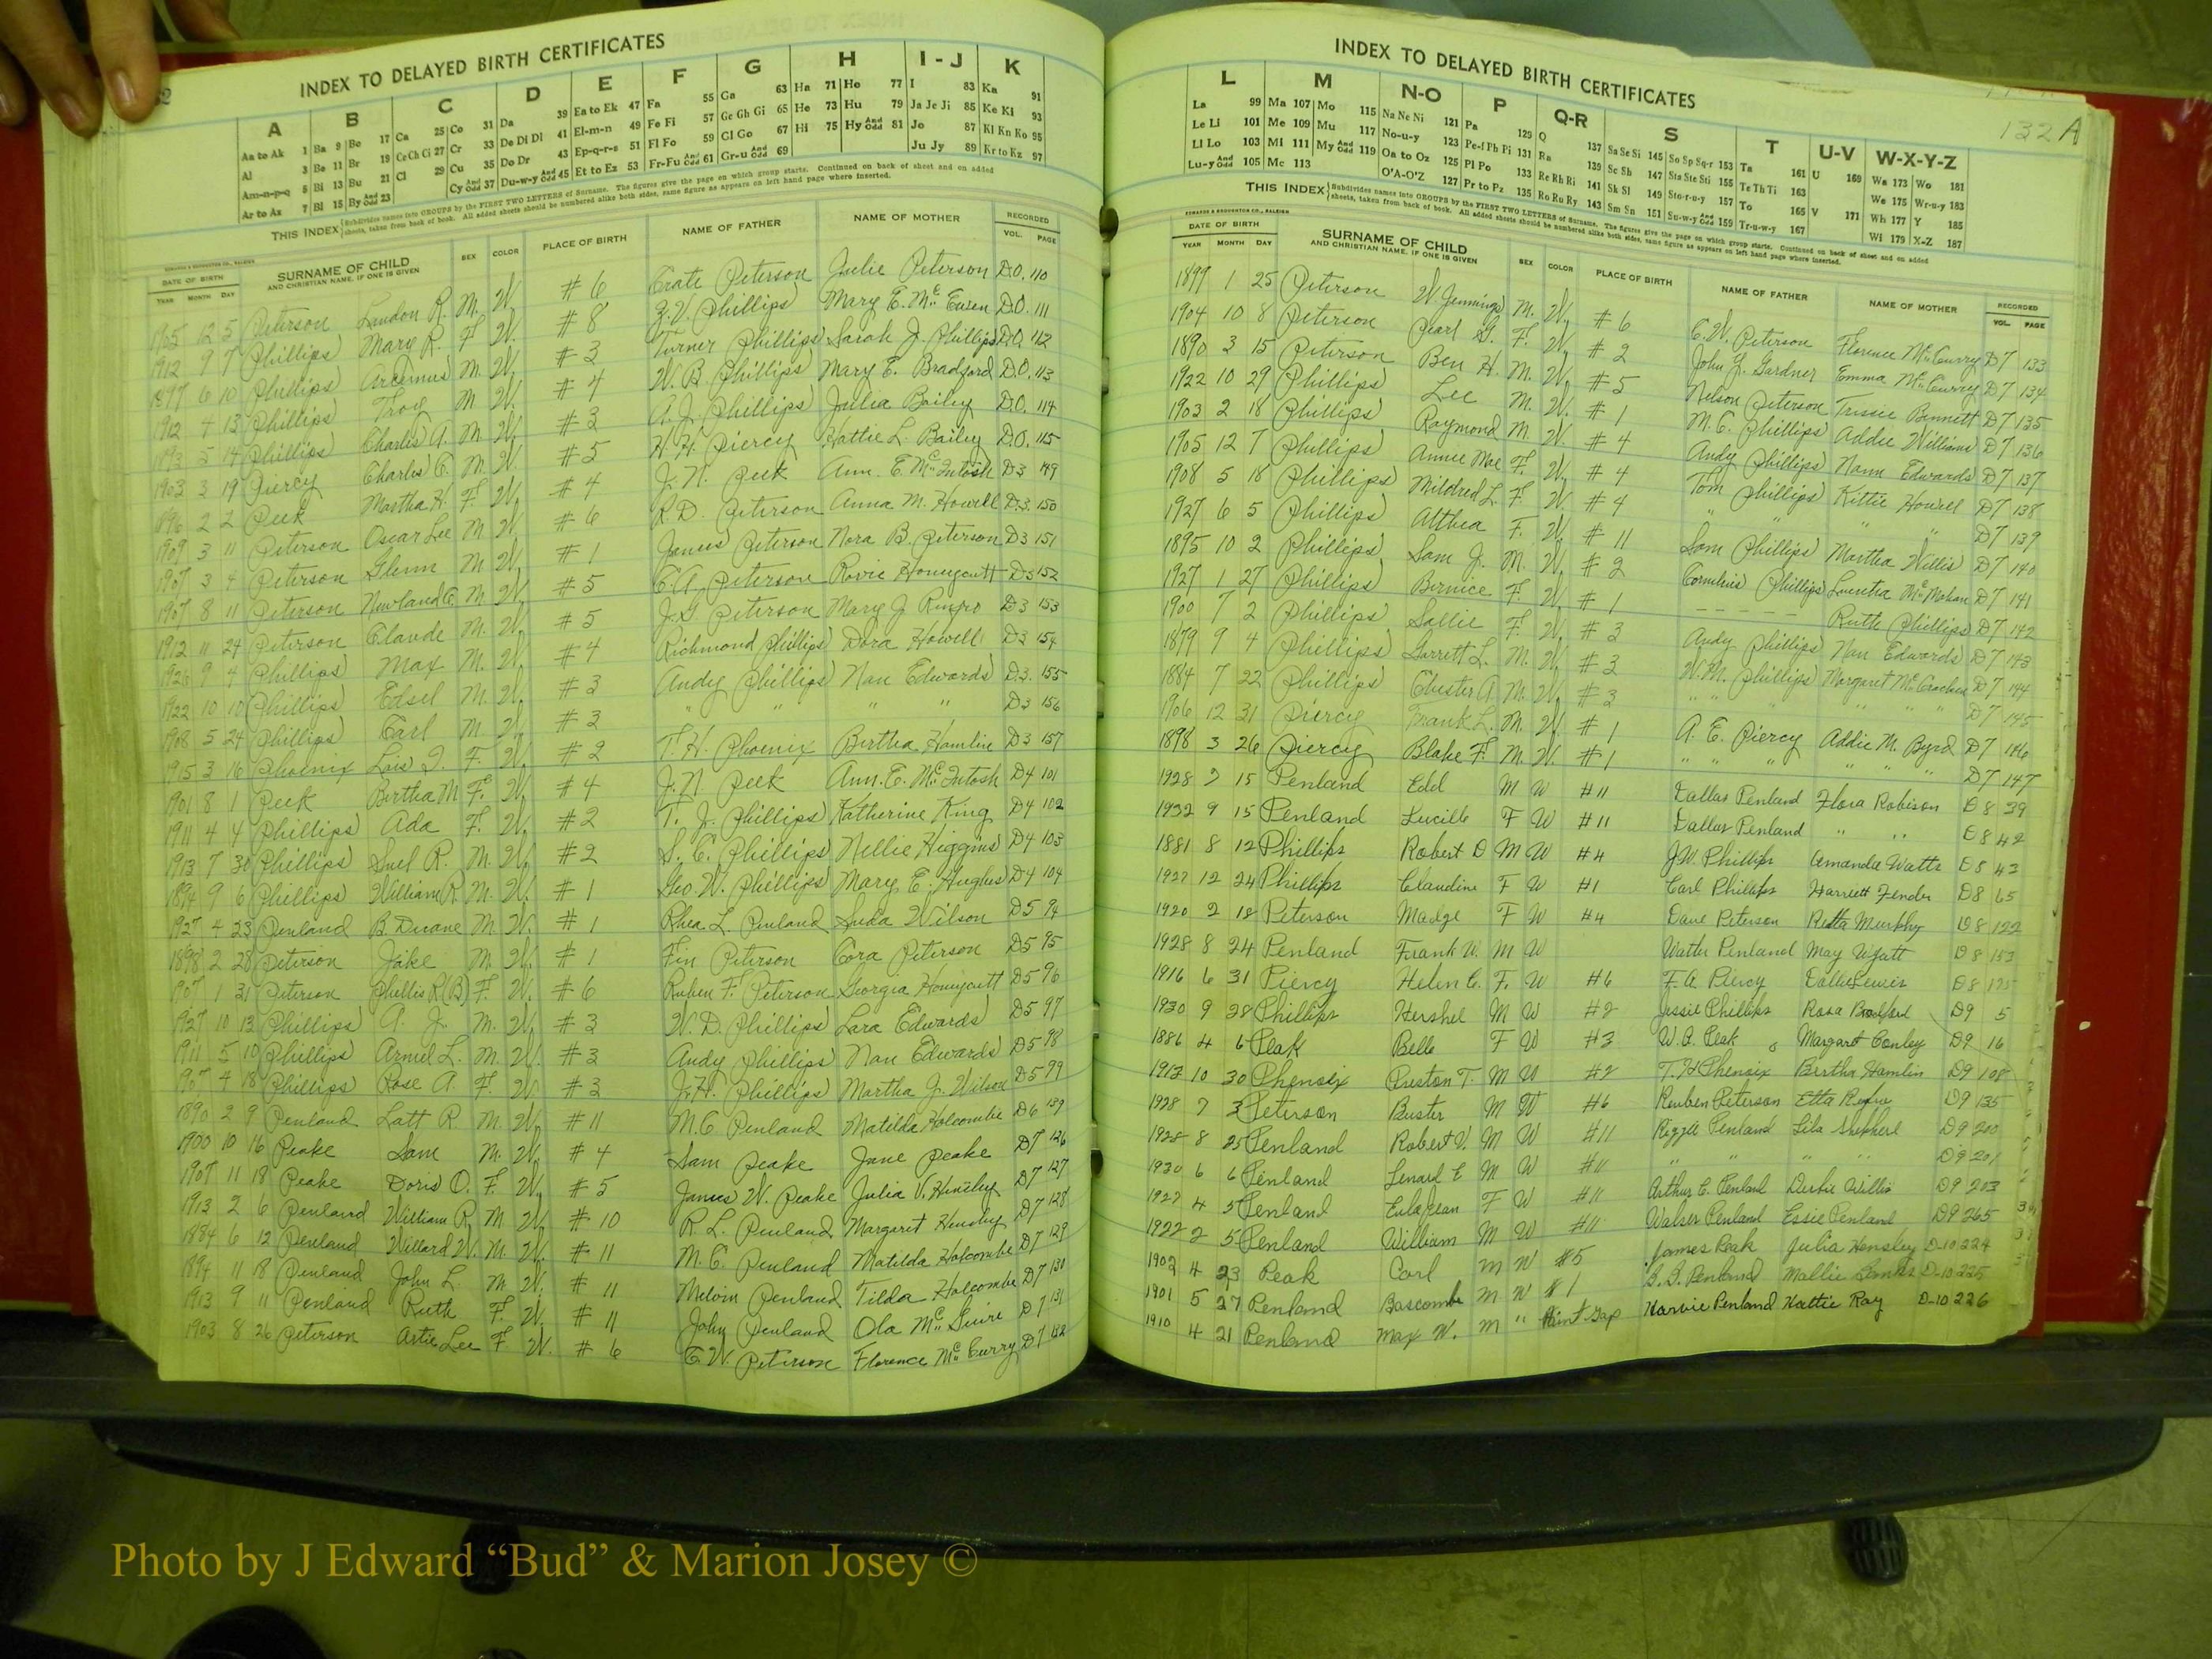 INDEX TO DELAYED BIRTH CERTIFICATES
A B C D E F G H I - J K
Aa to Ak 1 Ba 9 Bo 17 Ca 25 Co 31 Da 39 Ea to Ek 47 Fa 55 Ga 63 Ha 71 Ho 77 I 83 Ka 91
Al 3 Be 11 Br 19 Ce Ch Ci 27 Cr 33 De Di Dl 41 El-m-n 49 Fe Fi 57 Ge Gh Gi 65 He 73 Hu 79 Ja Je Ji 85 Ke Ki 93
Am-n-p-q 5 Bi 13 Bu 21 Cl 29 Cu 35 Do Dr 43 Ep-q-r-s 51 Fl Fo 59 Gl Go 67 Hi 75 Hy And Odd 81 Jo 87 Kl Kn Ko 95
Ar to Az 7 Bl 15 By And Odd 23 Cy And Odd 37 Du-w-y Odd 45 Et to Ez 53 Fr-Fu And Odd 61 Gr-u And Odd 69 Ju Jy 89 Kr to Kz 97
THIS INDEX Subdivides names into GROUPS by the FIRST TWO LETTERS of Surname. The figures give the page on which group starts. Continued on back of sheet and on added
sheets, taken from back of book. All added sheets should be numbered alike both sides, same figure as appears on left hand page where inserted.
DATE OF BIRTH SURNAME OF CHILD SEX COLOR PLACE OF BIRTH NAME OF FATHER NAME OF MOTHER RECORDED
YEAR MONTH DAY AND CHRISTIAN NAME, IF ONE IS GIVEN VOL. PAGE
1905 12 5 Peterson Landon R. M. W. #6 Crate Peterson Julie Peterson D.O. 110
1912 9 7 Phillips Mary R. F. W. #8 Z.V. Phillips Mary E. McEuen D.O. 111
1897 6 10 Phillips Arcemus M. W. #3 Turner Phillips Sarah J. Phillips D.O. 112
1912 4 13 Phillips Troy M W. #4 W. B. Phillips Mary E. Bradford D.O. 113
1893 5 14 Phillips Charlie A. M. W. #3 A. J. Phillips Julia Bailey D.O. 114
1903 3 19 Piercy Charlie C. M. W. #5 W. H. Piercy Hattie L. Bailey D.O. 115
1896 2 2 Peek Martha H. F. W. #4 J. N. Peek Ann. E. McIntosh D3 149
1909 3 11 Peterson Oscar Lee M. W. #6 R. D. Peterson Anna M. Howell D.3. 150
1907 3 4 Peterson Glenn M W. #1 James Peterson Nora B. Peterson D3 151
1907 8 11 Peterson Newland C. M. W. #5 C. A. Peterson Rovie Honeycutt D3 152
1912 11 24 Peterson Claude M. W. #5 J. G Peterson Mary J. D3 153
1926 9 4 Phillips Max M. W. #4 Richmond Phillips Dora Howell D3 154
1922 10 10 Phillips Edsel M. W. #3 Andy Phillips Nan Edwards D.3. 155
1908 5 24 Phillips Earl M W. #3 " " " " D3 156
1915 3 16 Phoenix Lois I. F. W. #2 T. H. Phoenix Birtha Hamline D3 157
1901 8 1 Peek Birtha M. F. W. #4 J. N Peek Ann. E. McIntosh D4 101
1911 4 4 Phillips Ada F. W. #2 T. J. Phillips Katherine King D4 102
1913 7 30 Phillips Suel R. M. W. #2 S. C. Phillips Nellie Higgins D4 103
1894 9 6 Phillips William R. M. W. #1 Geo. W. Phillips Mary E. Hughes D4 104
1927 4 23 Penland B. Duane M. W. #1 Rhea L. Penland Suda Wilson D5 94
1898 2 28 Peterson Jake M. W. #1 Fin Peterson Cora Peterson D5 95
1907 1 31 Peterson Phillis R (B) F. W. #6 Ruben F. Peterson Georgia Honeycutt D5 96
1927 10 13 Phillips A. J. M. W. #3 W. D. Phillips Lara Edwards D5 97
1911 5 10 Phillips Armel L. M. W. #3 Andy Phillips Nan Edwards D5 98
1907 4 18 Phillips Rose A. F. W. #3 J. H. Phillips Martha J. Wilson D5 99
1890 2 9 Penland Latt R. M. W. #11 M. C Penland Matilda Holcombe D6 139
1900 10 16 Peake Sam M. W. #4 Sam Peake Jane Peake D7 126
1907 11 18 Peake Doris O. F. W. #5 James W. Peake Julia V. Hensley D7 127
1913 2 6 Penland William R. M W. #10 R. L. Penland Margaret Hensley D7 128
1884 6 12 Penland Willard W. M. W. #11 M. C. Penland Matilda Holcombe D7 129
1894 11 18 Penland John L. M W. #11 Melvin Penland Tilda Holcombe D7 130
1913 9 11 Penland Ruth F. W. #11 John Penland Ola McGuire D7 131
1903 8 26 Peterson Artie Lee F. W. #6 C. W. Peterson Florence McCurry D7 132
INDEX TO DELAYED BIRTH CERTIFICATES
132 A
L M N-O P Q-R S T U-V W-X-Y-Z
La 99 Ma 107 Mo 115 Na Ne Ni 121 Pa 129 Q 137 Sa Se Si 145 So Sp Sq-r 153 Ta 161 U 169 Wa 173 Wo 181
Le Li 101 Me 109 Mu 117 No-u-y 123 Pe-f Ph Pi 131 Ra 139 Sc Sh 147 Sta Ste Sti 155 Te Th Ti 163 We 175 Wr-u-y 183
Ll Lo 103 Mi 111 My And Odd 119 Oa to Oz 125 Pl Po 133 Re Rh Ri 141 Sk Sl 149 Sto-r-u-y 157 To 165 V 171 Wh 177 Y 185
Lu-y And Odd 105 Mc 113 O'A-O'Z 127 Pr to Pz 135 Ro Ru Ry 143 Sm Sn 151 Su-w-y And Odd 159 Tr-u-w-y 167 Wi 179 X-Z 187
THIS INDEX Subdivides names into GROUPS by the FIRST TWO LETTERS of Surname. The figures give the page on which group starts. Continued on back of sheet and on added
sheets, taken from back of book. All added sheets should be numbered alike both sides, same figure as appears on left hand page where inserted.
EDWARDS & BROUGHTON CO., RALEIGH
DATE OF BIRTH SURNAME OF CHILD SEX COLOR PLACE OF BIRTH NAME OF FATHER NAME OF MOTHER RECORDED
YEAR MONTH DAY AND CHRISTIAN NAME, IF ONE IS GIVEN VOL. PAGE
1899 1 25 Peterson W. Jennings M. W. #6 C. W. Peterson Florence McCurry D7 133
1904 10 8 Peterson Pearl G. F. W. #2 John G. Gardner Emma McCurry D7 134
1890 3 15 Peterson Ben H. M. W. #5 Nelson Peterson Trissie Bennett D7 135
1922 10 29 Phillips Lee M. W. #1 M. C. Phillips Addie Williams D7 136
1903 2 18 Phillips Raymond M. W. #4 Andy Phillips Nann Edwards D7 137
1905 12 7 Phillips Annie Mae F. W. #4 Tom Phillips Kittie Howell D7 138
1908 5 18 Phillips Mildred L. F. W. #4 " " " " D7 139
1927 6 5 Phillips Althea F. W. #11 Sam Phillips Martha Willis D7 140
1895 10 2 Phillips Sam J. M. W. #2 Cornelius Phillips Lucretia McMahan D7 141
1927 1 27 Phillips Bernice F. W. #1 - - - - - - Ruth Phillips D7 142
1900 7 2 Phillips Sallie F. W. #3 Andy Phillips Nan Edwards D7 143
1879 9 4 Phillips Garrett L. M. W. #3 W. M. Phillips Margaret McCracken D7 144
1884 7 22 Phillips Chester A. M. W. #3 " " " " " " D7 145
1906 12 31 Piercy Frank L. M. W. #1 A. E. Piercy Addie M. Byrd D7 146
1898 3 26 Piercy Blake F. M. W. #1 " " " " " " D7 147
1928 7 15 Penland Edd M W #11 Dallas Penland Flora Robison D8 39
1932 9 15 Penland Lucille F W #11 Dallas Penland " " D8 42
1881 8 12 Phillips Robert D M W #4 J.W. Phillips Amanda Watts D8 43
1927 12 24 Phillips Claudine F W #1 Carl Phillips Harriett Fender D8 65
1920 2 18 Peterson Madge F W #4 Dave Peterson Retta Murphy D8 122
1928 8 24 Penland Frank W. M W Walter Penland May Wyatt D8 153
1916 6 31 Piercy Helen C. F. W #6 F. A. Piercy Dallie Lewis D8 175
1930 9 28 Phillips Hershel M W #2 Jessie Phillips Rosa Bradford D9 5
1886 4 6 Peak Belle F W #3 W. B. Peak Margaret Conley D9 16
1913 10 30 Phenoix Preston T. M W #2 T. H Phenoix Bertha Hamlin D9 108
1928 7 3 Peterson Buster M W #6 Reuben Peterson Etta D9 135
1925 8 25 Penland Robert V. M W #11 Rizzle Penland Lila Shepherd D9 200
1930 6 6 Penland Lenard E M W #11 " " " " D9 201
1927 4 5 Penland Eula Jean F W #11 Arthur C. Penland Debie Willis D9 203
1922 2 5 Penland William M W #11 Walser Penland Essie Penland D9 265
1902 4 23 Peak Carl M W #5 James Peak Julia Hensley D-10 224
1901 5 27 Penland Bascombe M W #1 B. B. Penland Mallie D-10 225
1910 4 21 Penland Max W. M " Mint Gap Harvie Penland Hattie Ray D-10 226
Photo by J Edward “Bud” & Marion Josey ©